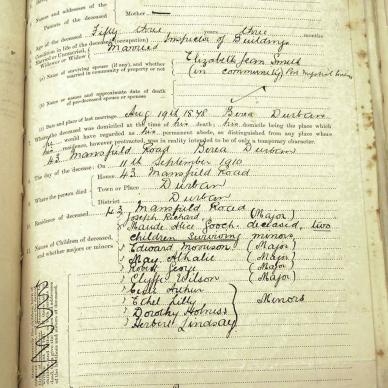 Names and addresses of the
Parents of the deceased
Mother
Age of the deceased Fifty three years three months
Condition in life of the deceased (occupation) Inspector of Buildings
Married or Unmarried, Widower or Widow Married
(a) Name of surviving spouse (if any), and whether married in community of property or not
Elizabeth Jean Smith
(in community)
(b) Name or names and approximate date of death of pre-deceased spouse or spouses
(c) Date and place of last marriage Aug 19th 1878 Berea Durban
Where the deceased was domiciled at the time of his death; his domicile being the place which
he would have regarded as his permanent abode, as distinguished from any place where
his residence, however protracted, was in reality intended to be only of a temporary character.
43 Mansfield Road Berea Durban
The day of the decease: On 11th September 1910
Where the person died
House 43 Mansfield Road
Town or Place Durban
District Durban
Residence of deceased 43 Mansfield Road
Names of Children of deceased, and whether majors or minors
Joseph Richard (Major)
Maude Alice Gooch deceased, two
children surviving minors
Edward Morrison (Major)
May Athalie (Major)
Robert George (Major)
Clyffe Wilson (Major)
Cecil Arthur
Ethel Lilly Minors
Dorothy Holness
Herbert Lindsay